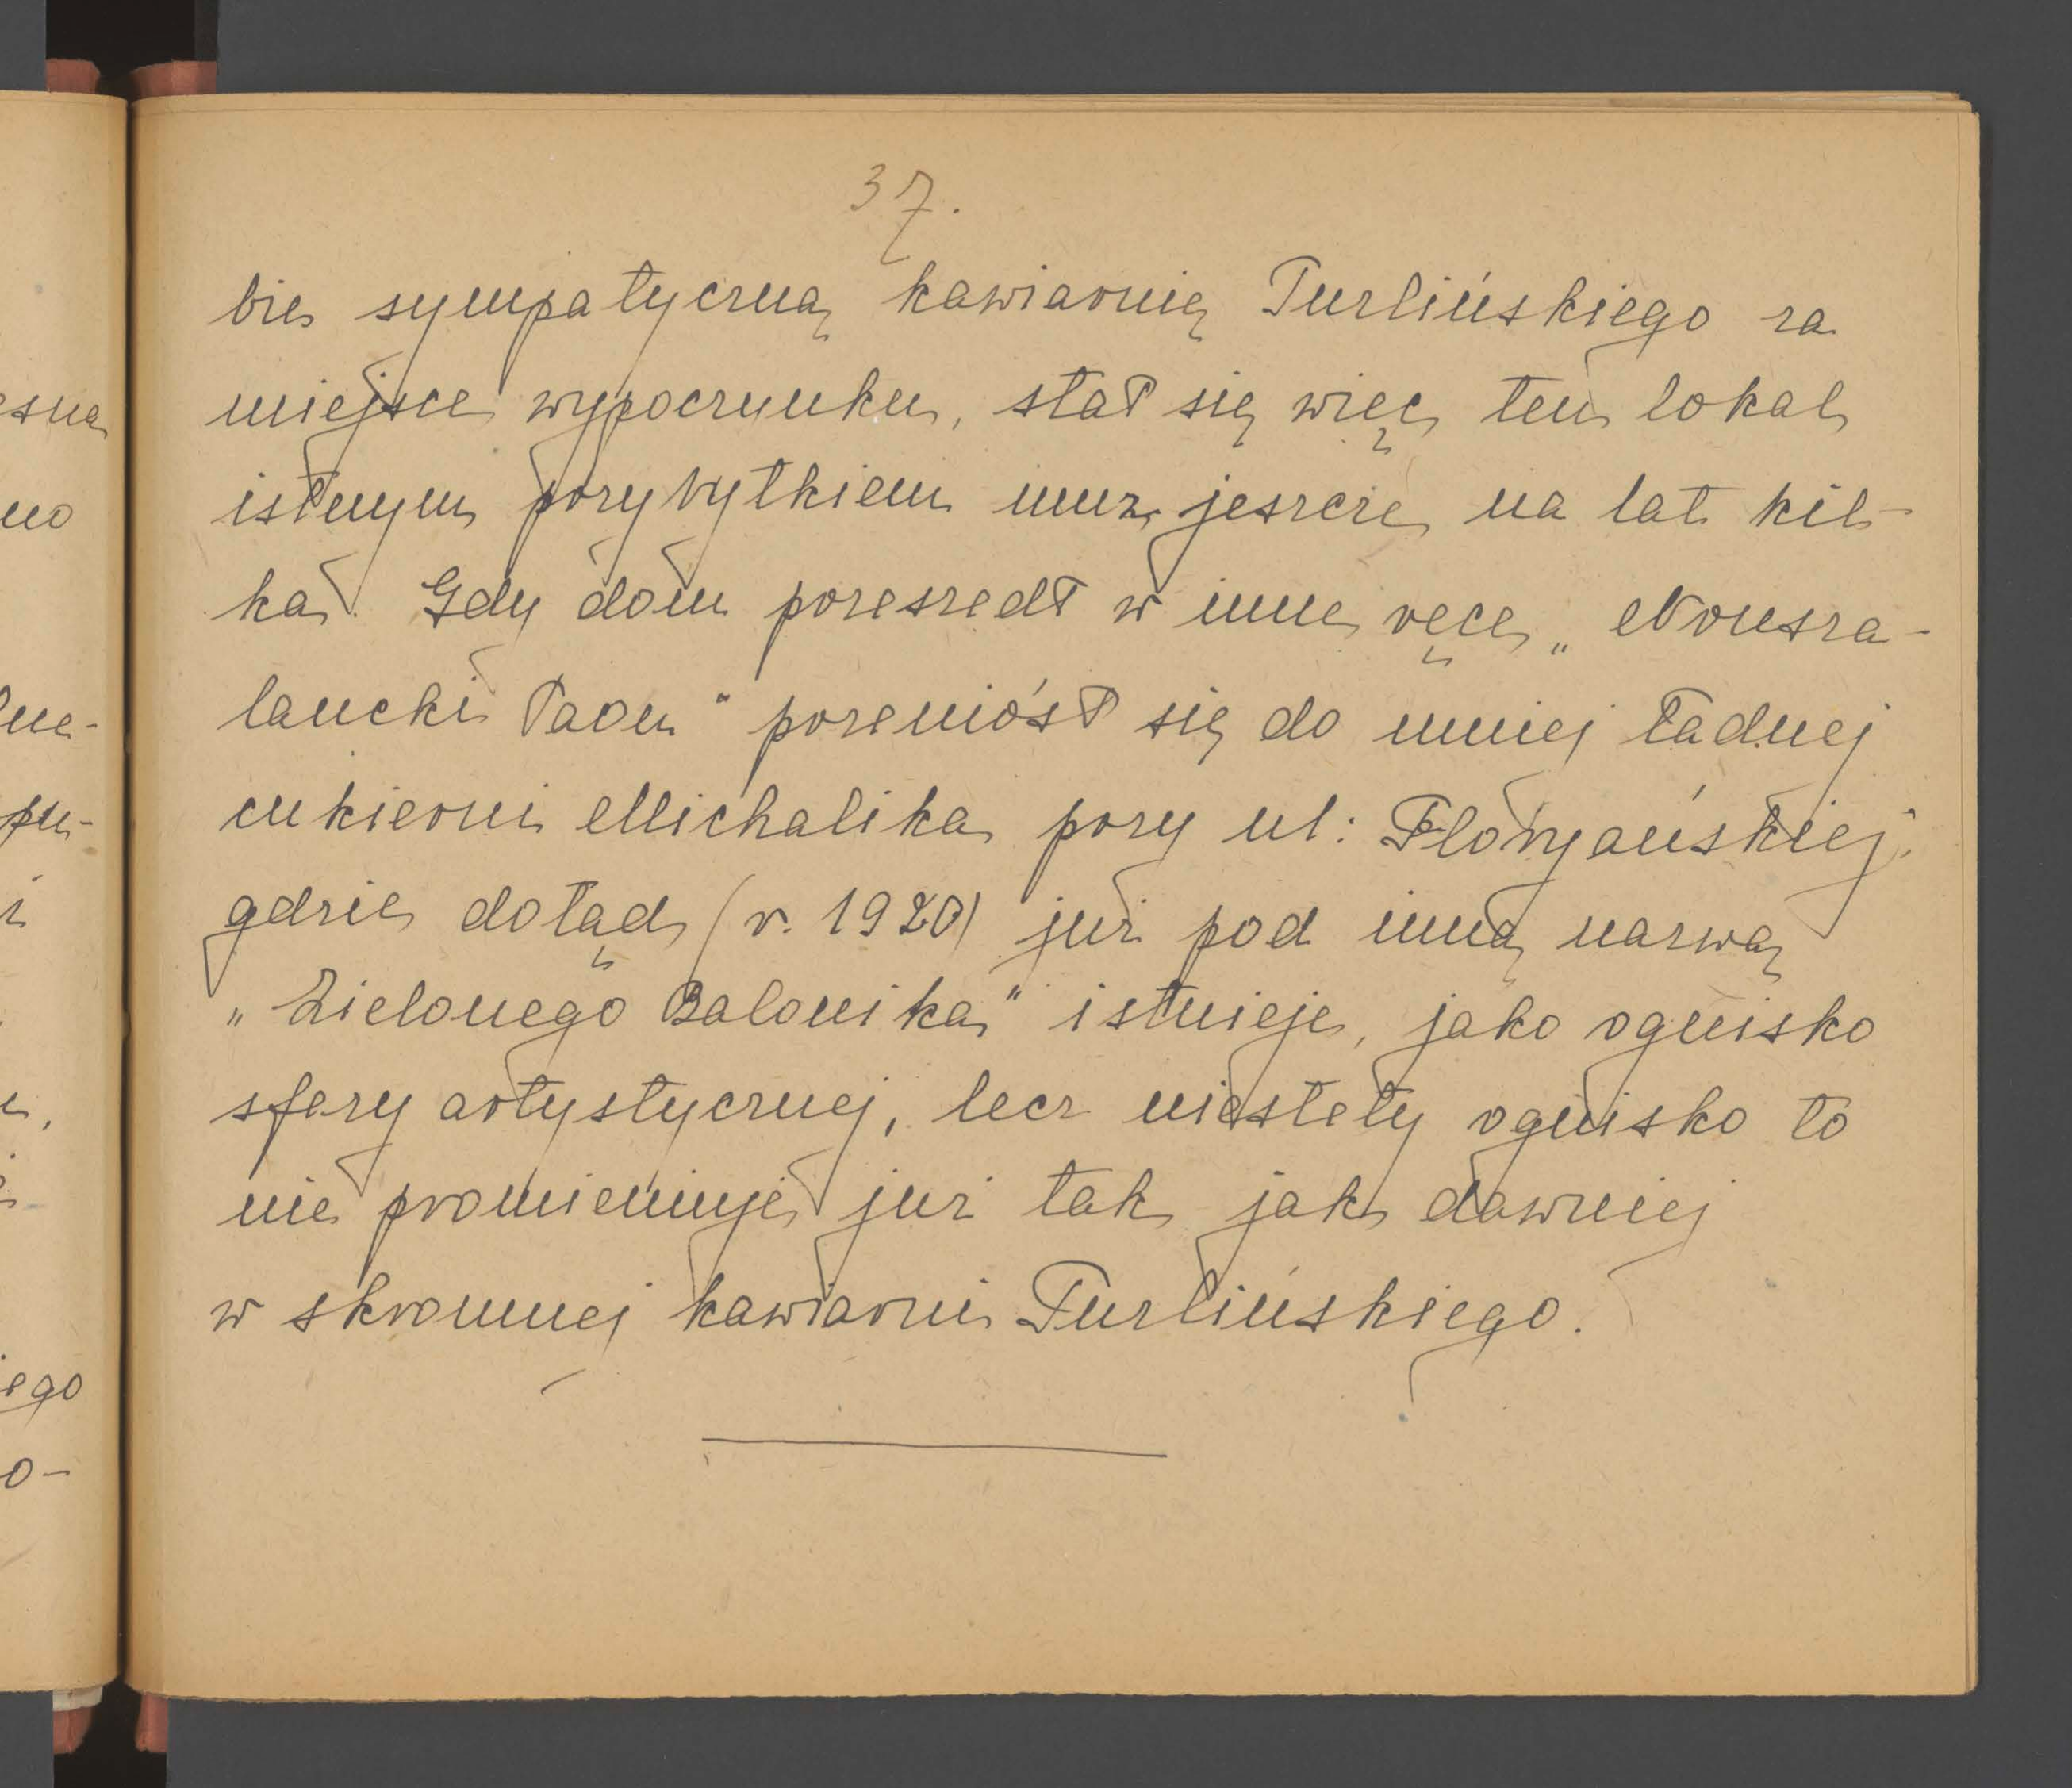 37.
bie sympatyczną kawiarnię Turlińskiego za
miejsce wypoczynku, stał się więc ten lokal
istnym przybytkiem muz jeszcze na lat kil-
ka. Gdy dom przeszedł w inne ręce „Nonsza-
lancki Paon" przeniósł się do mniej ładnej
cukierni Michalika przy ul: Floryańskiej.
gdzie dotąd (r. 1920) już pod inną nazwą
„Zielonego Balonika" istnieje, jako ognisko
sfery artystycznej, lecz niestety ognisko to
nie promieniuje już tak jak dawniej
w skromnej kawiarni Turlińskiego.